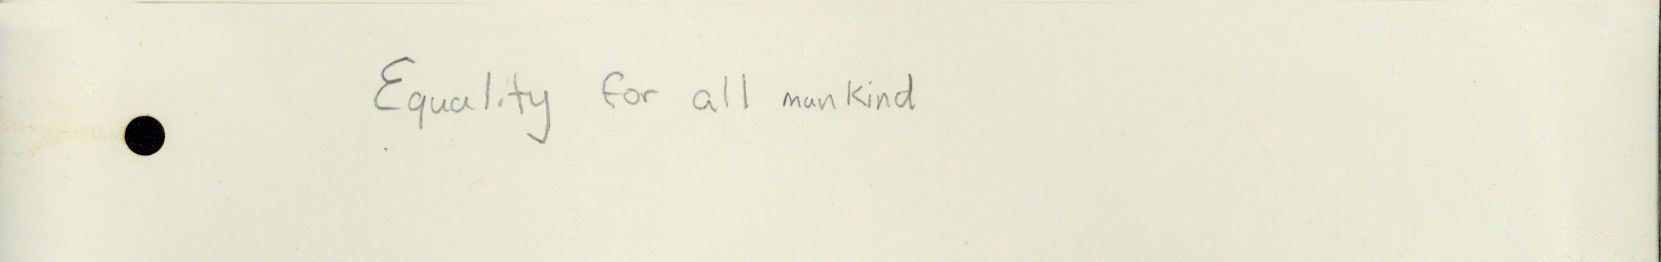 Equality for all mankind